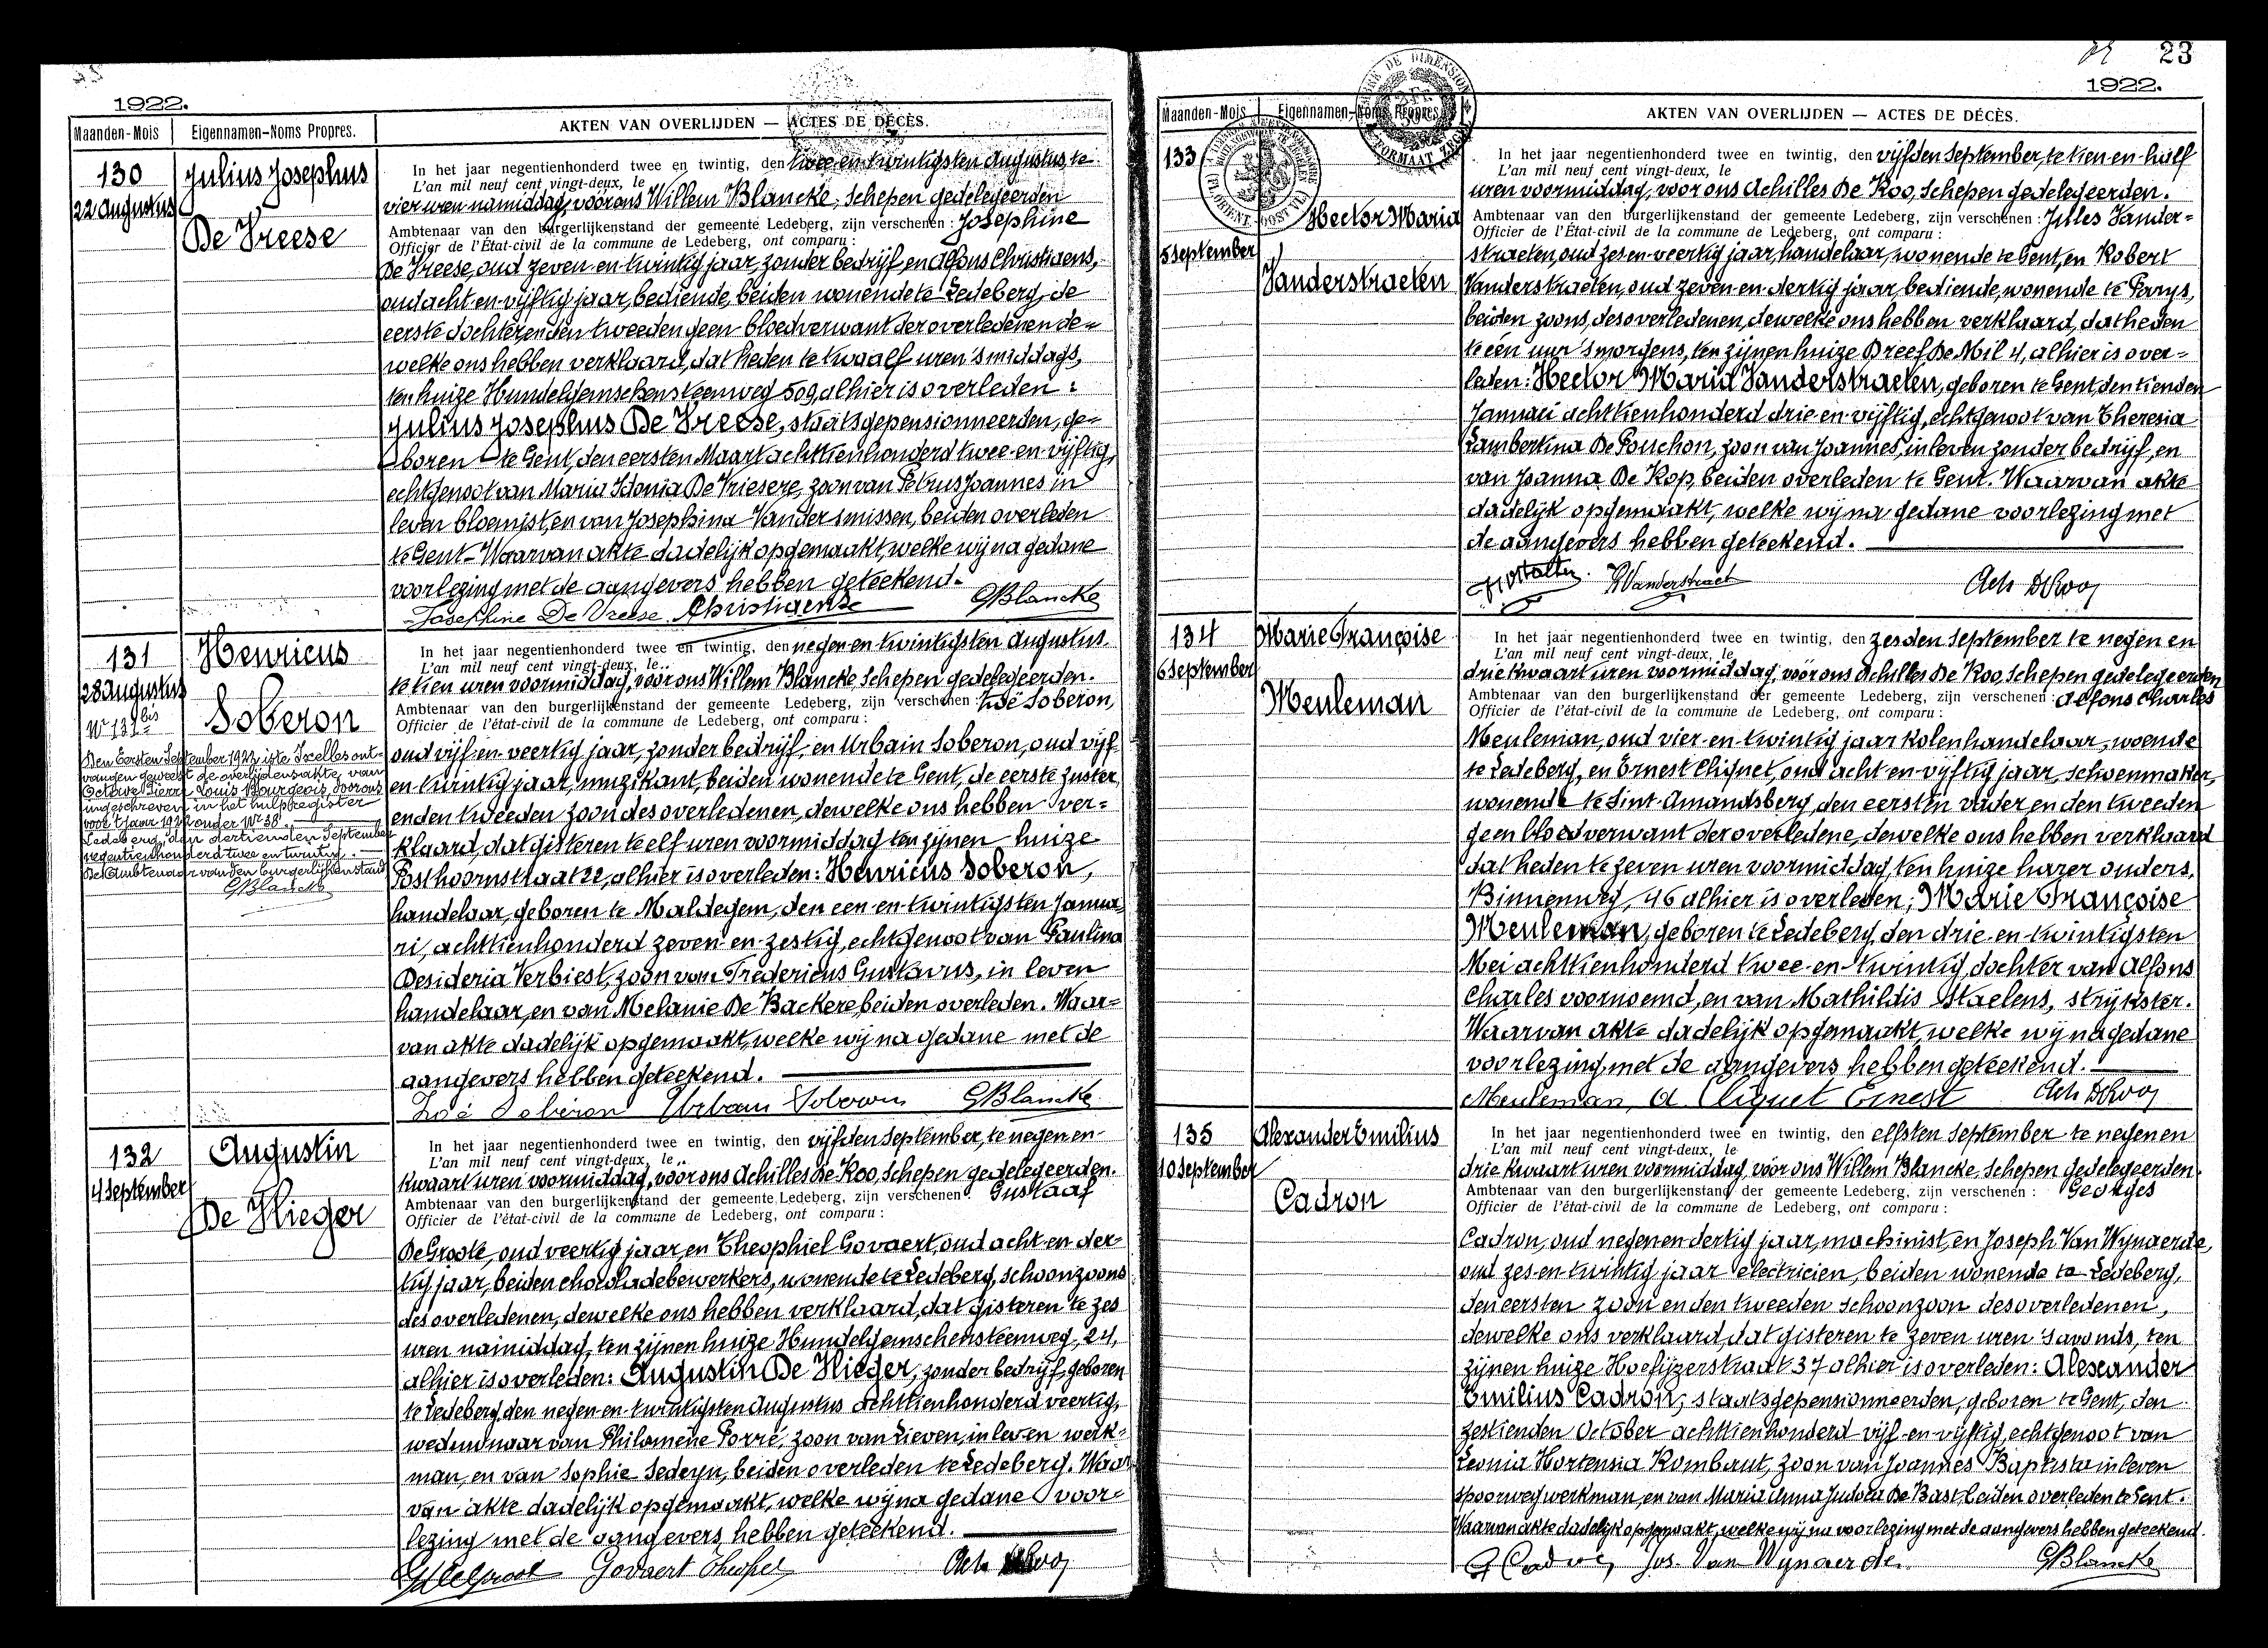 1922.
Maanden-Mois
Eigennamen-Noms Propres.
AKTEN VAN OVERLIJDEN — ACTES DE DÉCÈS.
130
22 Augustus
Julius Josephus
De Vreese
In het jaar negentienhonderd twee en twintig, den twee-en-twintigsten Augustus, te
L'an mil neuf cent vingt-deux, le
vier uren namiddag, vóór ons Willem Blancke, Schepen gedelegeerden
Ambtenaar van den burgerlijkenstand der gemeente Ledeberg, zijn verschenen : Josephine
Officier de l'État-civil de la commune de Ledeberg, ont comparu :
De Vreese, oud zeven-en-twintig jaar, zonder bedrijf, en Alfons Christiaens,
oud acht-en-vijftig jaar, bediende, beiden wonende te Ledeberg, de
eerste dochter, en den tweeden geen bloedverwant der overledenen de=
welke ons hebben verklaard, dat heden te twaalf uren 's middags,
ten huize Hundelgemschensteenweg 509, alhier is overleden :
Julius Josephus De Vreese, staatsgepensionneerden, ge=
boren te Gent, den eersten Maart achttienhonderd twee-en-vijftig,
echtgenoot van Maria Idonia De Vriesere, zoon van Petrus Joannes in
leven bloemist, en van Josephina Vander Smissen, beiden overleden
te Gent. Waarvan akte dadelijk opgemaakt, welke wij na gedane
voorlezing met de aangevers hebben geteekend.
Josephine De Vreese Christiaens GBlancke
131
28 Augustus
Henricus
Soberon
Nr 131 bis
Den Eersten September 1922, is te Ixelles ont-
vangen geweest de overlijdensakte van
Octave Pierre Louis Bourgeois, Dorons
ingeschreven in het hulpregister
voor 't jaar 1922 onder Nr 38.
Ledeberg, den dertienden September
negentienhonderd twee en twintig.
De Ambtenaar van den burgerlijkenstand
GBlancke
In het jaar negentienhonderd twee en twintig, den negen-en-twintigsten Augustus
L'an mil neuf cent vingt-deux, le
te tien uren voormiddag, vóór ons Willem Blancke, Schepen gedelegeerden.
Ambtenaar van den burgerlijkenstand der gemeente Ledeberg, zijn verschenen Zoë Soberon,
Officier de l'état-civil de la commune de Ledeberg, ont comparu :
oud vijf-en-veertig jaar, zonder bedrijf en Urbain Soberon, oud vijf
en twintig jaar, muzikant, beiden wonende te Gent, de eerste zuster,
en den tweeden zoon des overledenen, dewelke ons hebben ver=
klaard, dat gisteren te elf uren voormiddag ten zijnen huize
Posthoornstraat 22, alhier is overleden : Henricus Soberon,
handelaar, geboren te Maldegem, den een-en-twintigsten Janua=
ri, achttienhonderd zeven-en-zestig, echtgenoot van Paulina
Desideria Verbiest, zoon van Fredericus Gustavus, in leven
handelaar, en van Melanie De Backere, beiden overleden. Waar=
van akte dadelijk opgemaakt, welke wij na gedane met de
aangevers hebben geteekend.
Zoé Soberon Urbain Soberon GBlancke
132
4 September
Augustin
De Vlieger
In het jaar negentienhonderd twee en twintig, den vijfden September, te negen en
L'an mil neuf cent vingt-deux, le
kwaart uren voormiddag, vóór ons Achilles De Koo, Schepen gedelegeerden.
Ambtenaar van den burgerlijkenstand der gemeente Ledeberg, zijn verschenen : Gustaaf
Officier de l'état-civil de la commune de Ledeberg, ont comparu :
De Groote, oud veertig jaar, en Theophiel Govaert, oud acht-en-der-
tig jaar, beiden chocoladebewerkers, wonende te Ledeberg, schoonzoons
des overledenen, dewelke ons hebben verklaard, dat gisteren te zes
uren namiddag, ten zijnen huize Hundelgemschensteenweg, 24,
alhier is overleden: Augustin De Vlieger, zonder bedrijf, geboren
te Ledeberg, den negen-en-twintigsten Augustus achttienhonderd veertig,
weduwnaar van Philomène Porré, zoon van Lieven, in leven werk=
man, en van Sophie Sedeyn, beiden overleden te Ledeberg. Waar
van akte dadelijk opgemaakt, welke wij na gedane voor=
lezing met de aangevers hebben geteekend.
Govaert Theophiel
23
1922.
Maanden-Mois
Eigennamen-Noms Propres
AKTEN VAN OVERLIJDEN — ACTES DE DÉCÈS.
133
5 September
Hector Maria
Vanderstraeten
In het jaar negentienhonderd twee en twintig, den vijfden September, te tien en half
L'an mil neuf cent vingt-deux, le
uren voormiddag, voor ons Achilles De Koo, Schepen gedelegeerden.
Ambtenaar van den burgerlijkenstand der gemeente Ledeberg, zijn verschenen : Jules Vander=
Officier de l'État-civil de la commune de Ledeberg, ont comparu :
straeten, oud zes-en-veertig jaar, handelaar, wonende te Gent, en Robert
Vanderstraeten, oud zeven-en-dertig jaar, bediende, wonende te Parys,
beiden zoons, des overledenen, dewelke ons hebben verklaard, dat heden
te één uur 's morgens, ten zijnen huize Dreef De Mil 4, alhier is over=
leden : Hector Maria Vanderstraeten, geboren te Gent, den tienden
Januari achttienhonderd drie-en-vijftig, echtgenoot van Theresia
Lambertina De Pouchon, zoon van Joannes, in leven zonder bedrijf, en
van Joanna De Kop, beiden overleden te Gent. Waarvan akte
dadelijk opgemaakt, welke wij na gedane voorlezing met
de aangevers hebben geteekend.
134
6 September
Marie Françoise
Meuleman
In het jaar negentienhonderd twee en twintig, den zesden September te negen en
L'an mil neuf cent vingt-deux, le
drie kwaart uren voormiddag, vóór ons Achilles De Koo, Schepen gedelegeerden
Ambtenaar van den burgerlijkenstand der gemeente Ledeberg, zijn verschenen : Alfons Charles
Officier de l'état-civil de la commune de Ledeberg, ont comparu :
Meuleman, oud vier-en-twintig jaar kolenhandelaar, woende
te Ledeberg, en Ernest Cliquet, oud acht-en-vijftig jaar, schoenmaker,
wonende te Sint-Amandsberg, den eersten vader en den tweeden
geen bloedverwant der overledene, dewelke ons hebben verklaard
dat heden te zeven uren voormiddag, ten huize harer ouders,
Binnenweg, 46 alhier is overleden; Marie Françoise
Meuleman, geboren te Ledeberg, den drie-en-twintigsten
Mei achttienhonderd twee-en-twintig, dochter van Alfons
Charles voornoemd, en van Mathildis Staelens, strijkster.
Waarvan akte dadelijk opgemaakt, welke wij na gedane
voorlezing, met de aangevers hebben geteekend.
Meuleman, A Cliquet Ernest
135
10 September
Alexander Emilius
Cadron
In het jaar negentienhonderd twee en twintig, den elfsten September te negen en
L'an mil neuf cent vingt-deux, le
drie kwaart uren voormiddag, vóór ons Willem Blancke, Schepen gedelegeerden.
Ambtenaar van den burgerlijkenstand der gemeente Ledeberg, zijn verschenen : Georges
Officier de l'état-civil de la commune de Ledeberg, ont comparu :
Cadron, oud negenendertig jaar, machinist, en Joseph Van Wynaerde,
oud zes-en-twintig jaar electricien, beiden wonende te Ledeberg,
den eersten zoon en den tweeden schoonzoon des overledenen,
dewelke ons verklaard dat gisteren te zeven uren 's avonds, ten
zijnen huize Hoefijzerstraat 37 alhier is overleden : Alexander
Emilius Cadron, staatsgepensionneerden, geboren te Gent, den
zestienden October achttienhonderd vijf-en-vijftig, echtgenoot van
Leonia Hortensia Rombaut, zoon van Joannes Baptista in leven
spoorwegwerkman, en van Maria Anna Judoca De Bast, beiden overleden te Gent.
Waarvan akte dadelijk opgemaakt, welke wij na voorlezing met de aangevers hebben geteekend.
G Cadron Jos. Van Wynaerde. GBlancke